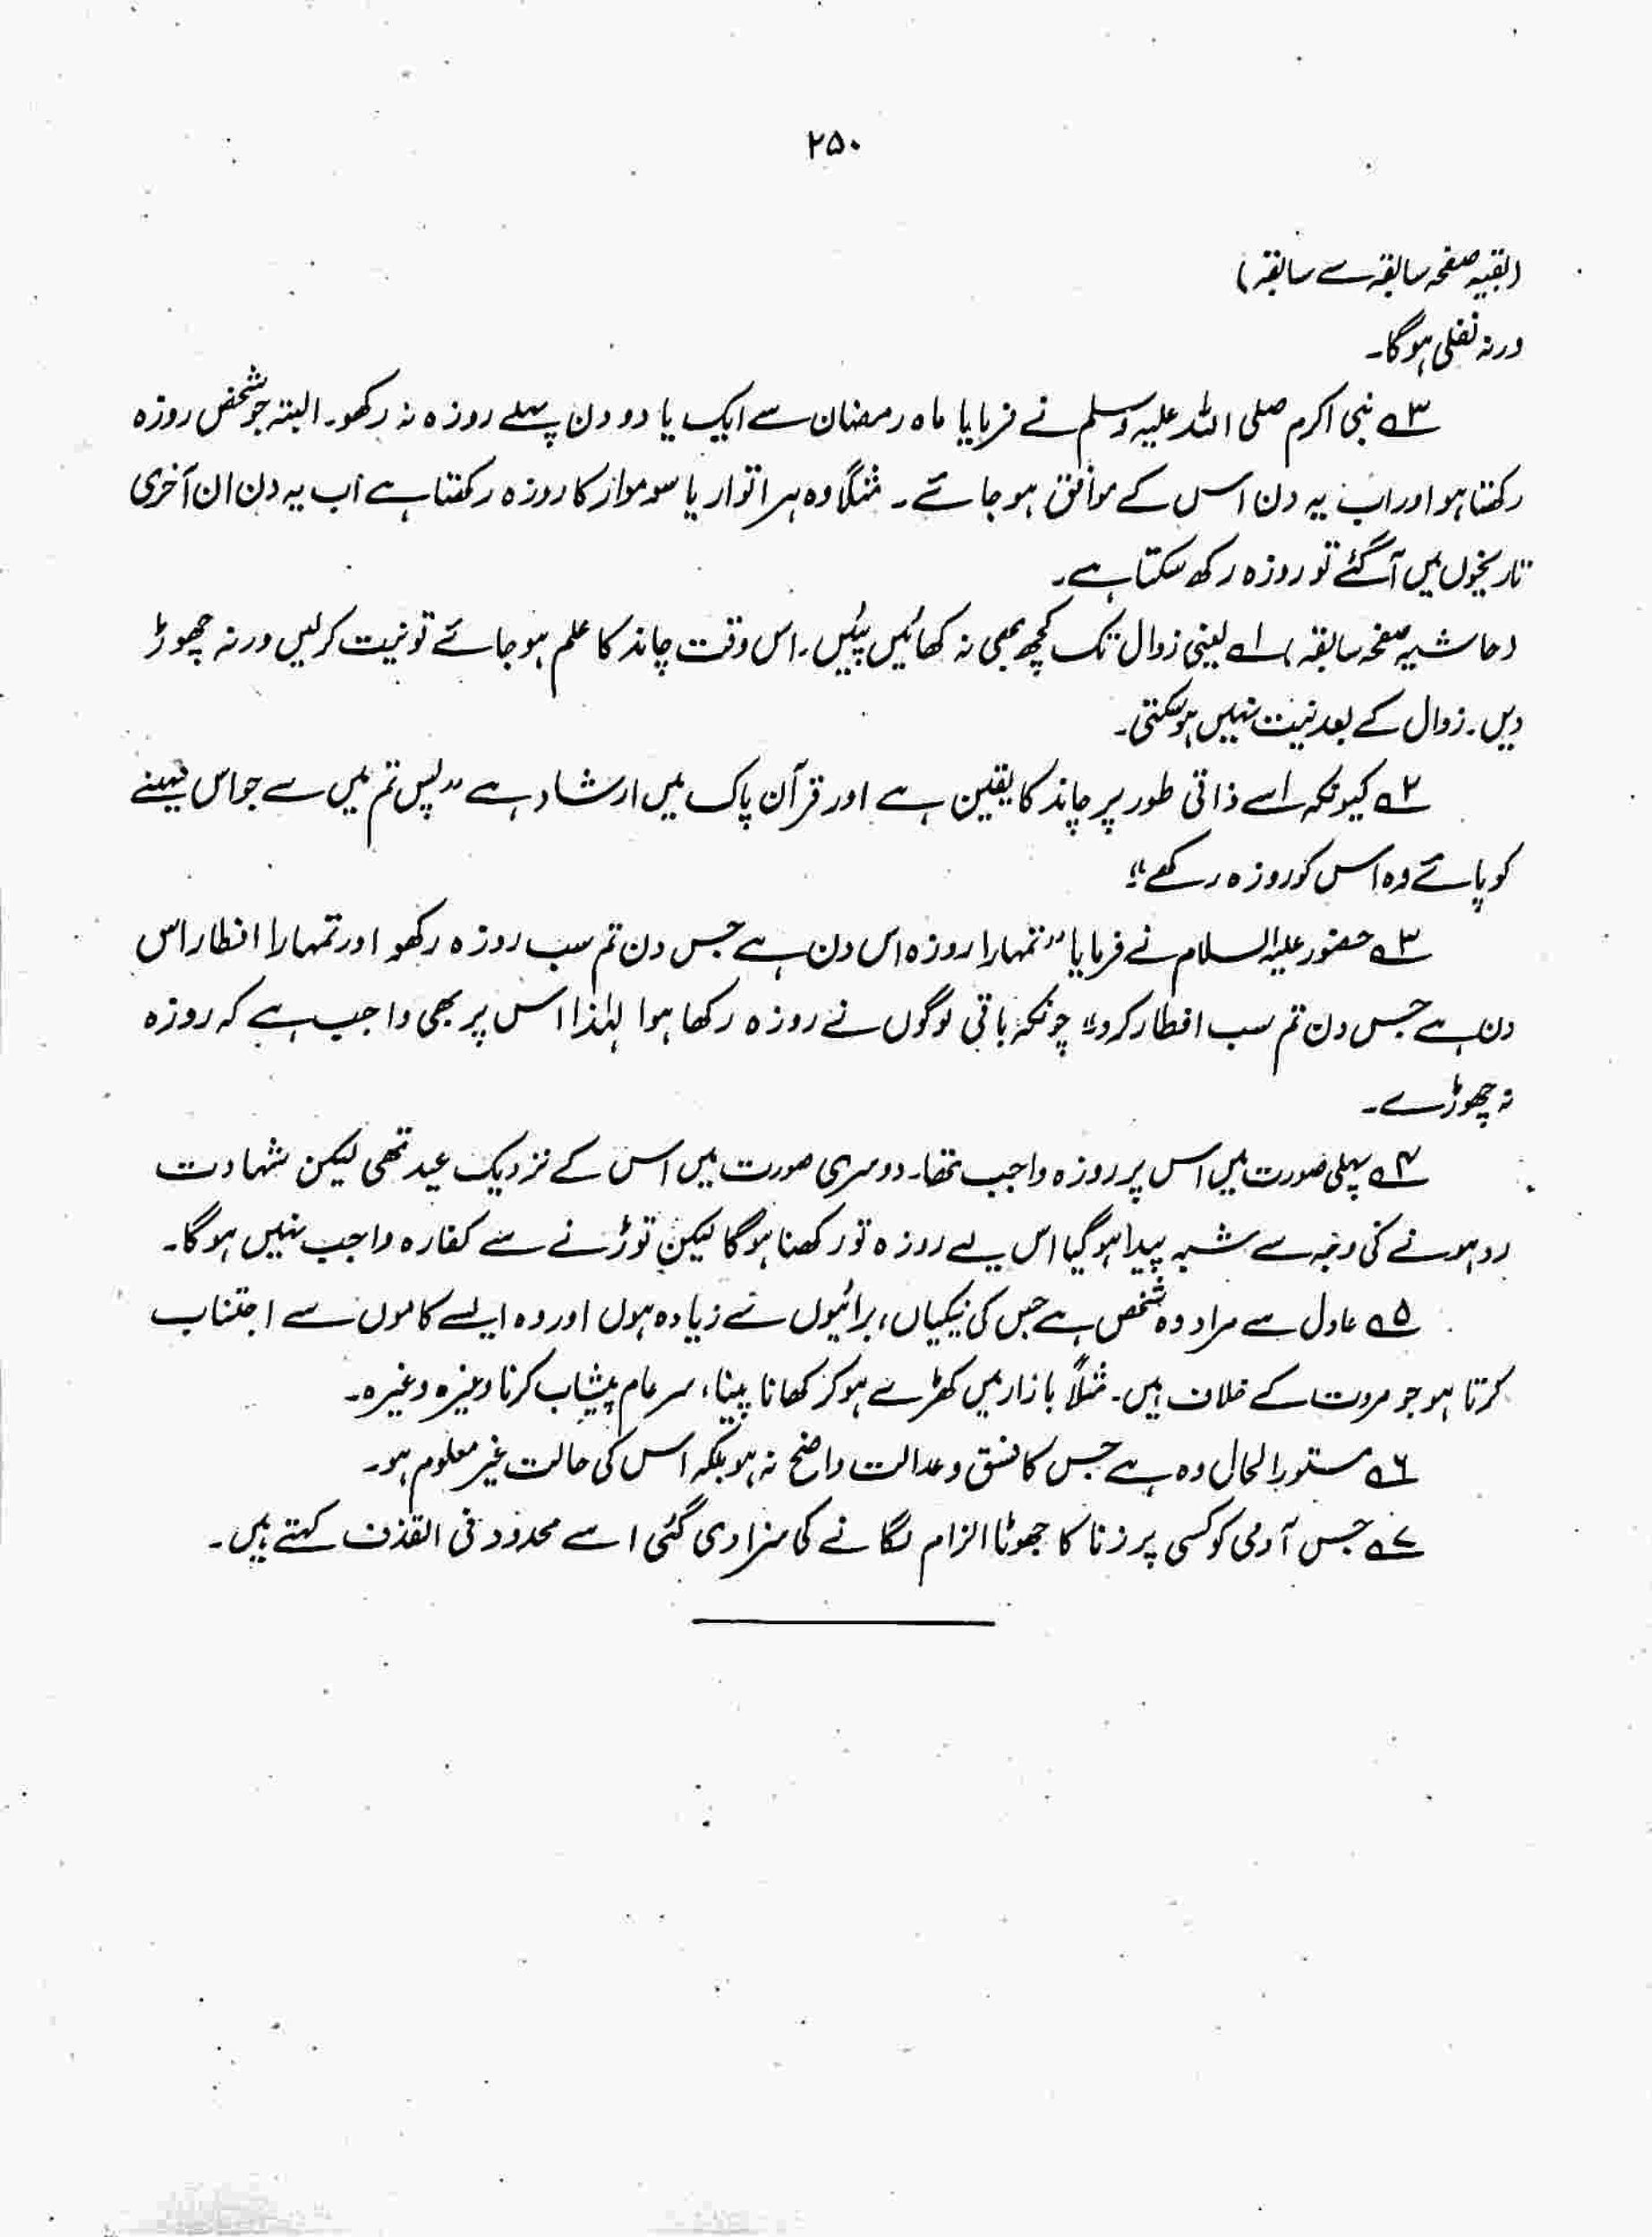 ۲۵۰
(بقیہ صفحہ سابقہ سے سابقہ)
ورنہ نفلی ہوگا۔
۳؎ نبی اکرم صلی اللہ علیہ وسلم نے فرمایا ماہ رمضان سے ایک یا دو دن پہلے روزہ نہ رکھو۔ البتہ جو شخص روزہ
رکھتا ہو اور اب یہ دن اس کے موافق ہو جائے۔ مثلًا وہ ہر اتوار یا سوموار کا روزہ رکھتا ہے اب یہ دن ان آخری
تاریخوں میں آگئے تو روزہ رکھ سکتا ہے۔
(حاشیہ صفحہ سابقہ) ۱؎ یعنی زوال تک کچھ بھی نہ کھائیں پئیں۔ اس وقت چاند کا علم ہو جائے تو نیت کرلیں ورنہ چھوڑ
دیں۔ زوال کے بعد نیت نہیں ہوسکتی۔
۲؎ کیونکہ اسے ذاتی طور پر چاند کا یقین ہے اور قرآن پاک میں ارشاد ہے "پس تم میں سے جو اس مہینے
کو پائے وہ اس کو روزہ رکھے"
۳؎ حضور علیہ السلام نے فرمایا "تمہارا روزہ اس دن ہے جس دن تم سب روزہ رکھو اور تمہارا افطار اس
دن ہے جس دن تم سب افطار کرو" چونکہ باقی لوگوں نے روزہ رکھا ہوا لہٰذا اس پر بھی واجب ہے کہ روزہ
نہ چھوڑے۔
۴؎ پہلی صورت میں اس پر روزہ واجب تھا۔ دوسری صورت میں اس کے نزدیک عید تھی لیکن شہادت
رد ہونے کی وجہ سے شبہ پیدا ہوگیا اس لیے روزہ تو رکھنا ہوگا لیکن توڑنے سے کفارہ واجب نہیں ہوگا۔
۵؎ عادل سے مراد وہ شخص ہے جس کی نیکیاں، برائیوں سے زیادہ ہوں اور وہ ایسے کاموں سے اجتناب
کرتا ہو جو مروت کے خلاف ہیں۔ مثلاً بازار میں کھڑے ہوکر کھانا پینا، سرعام پیشاب کرنا وغیرہ وغیرہ۔
۶؎ مستور الحال وہ ہے جس کا فسق و عدالت واضح نہ ہو بلکہ اس کی حالت غیر معلوم ہو۔
۷؎ جس آدمی کو کسی پر زنا کا جھوٹا الزام لگانے کی سزا دی گئی اسے محدود فی القذف کہتے ہیں۔